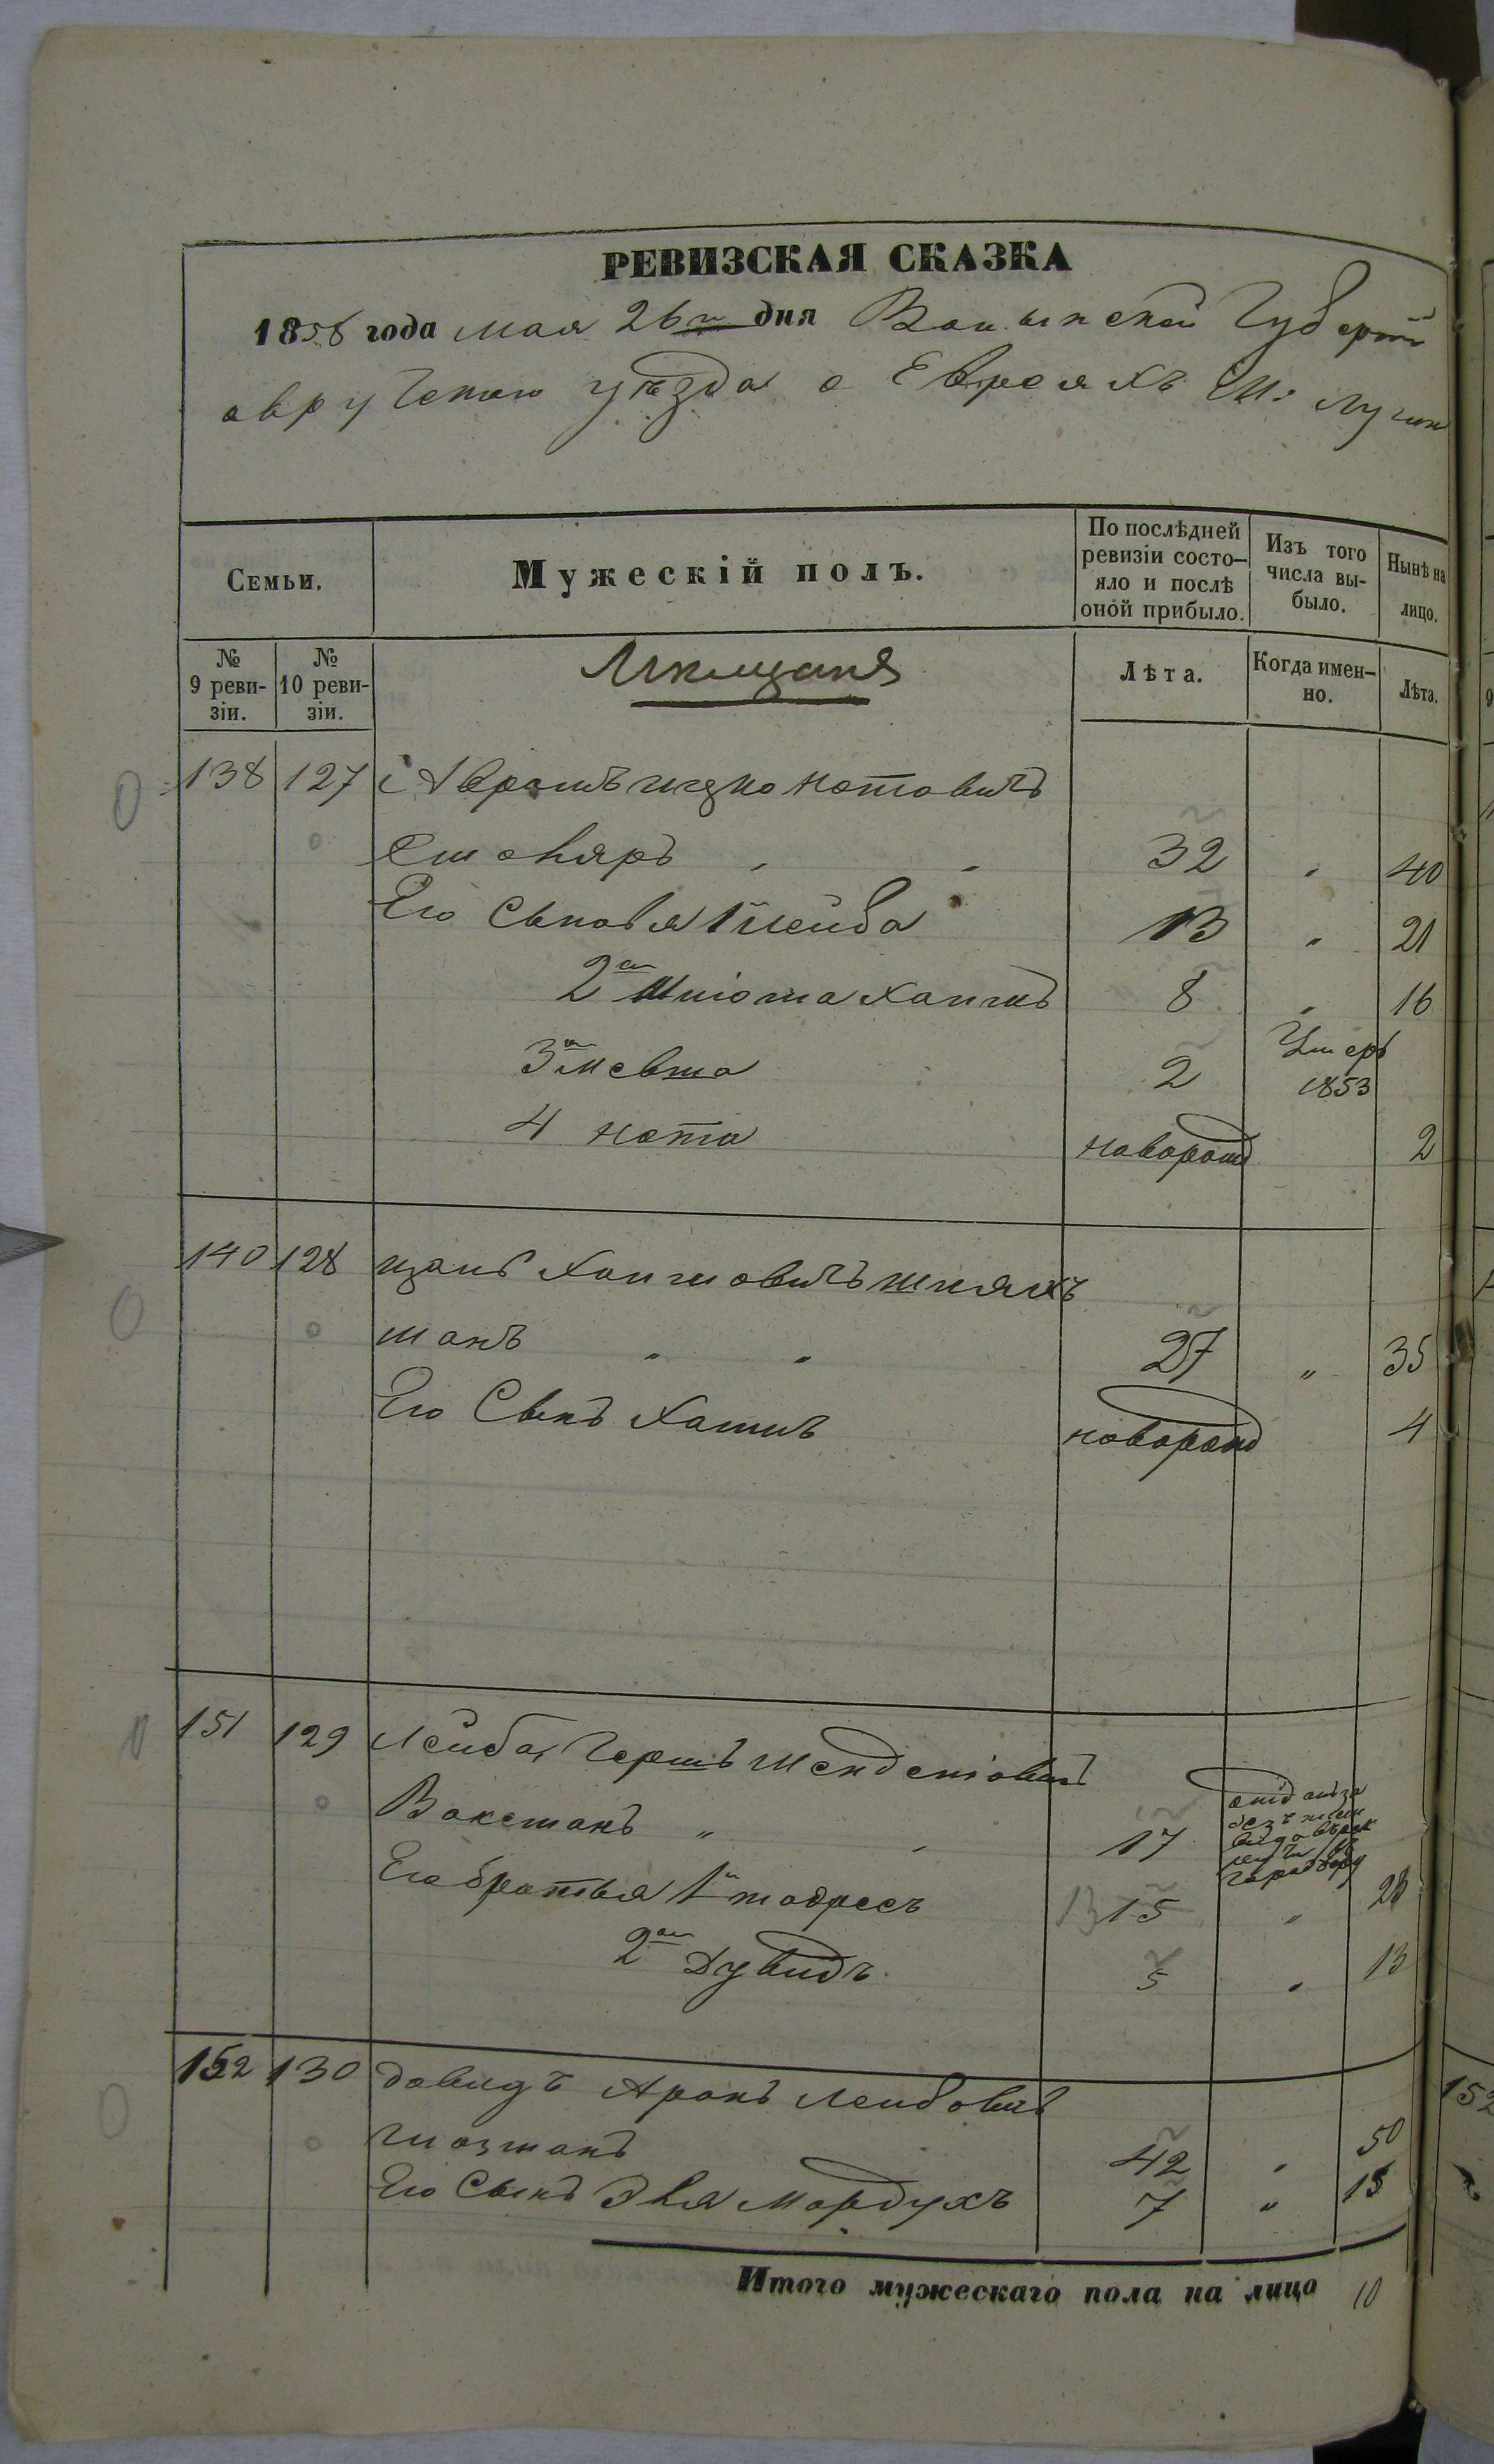 РЕВИЗСКАЯ СКАЗКА
1858 года мая 26го дня Волынской Губерніи
овручскаго уѣзда о Евреяхъ М: Лугин
Семьи.
Мужескій полъ.
По послѣдней ревизіи состо-яло и послѣ оной прибыло.
Изъ того числа вы-было.
Нынѣ на лицо.
№ 9 реви-зіи.
№ 10 реви-зіи.
Мѣщаня
Лѣта.
Когда имен-но.
Лѣта.
138 127 Аврамъ ицко нотовичъ
32 " 40
Его Сыновья 1 Лейба 13 " 21
2й Хаимъ 8 " 16
3й 2 Умеръ 1853
4 нота новорожд 2
140 128 Хаимовичъ шнялх
манъ " " 27 " 35
Его Сынъ Хаимъ новорожд 4
151 129 Лейба Гершъ Менделіовичъ
Ваксманъ " 17
Его братья 1й тодресъ 13 15 " 23
2й Дувидъ 5 " 13
152 130 Давидъ Аронъ Лейбовичъ
42 " 50
Его Сынъ Эля Мордухъ 7 " 15
Итого мужескаго пола на лицо 10
152